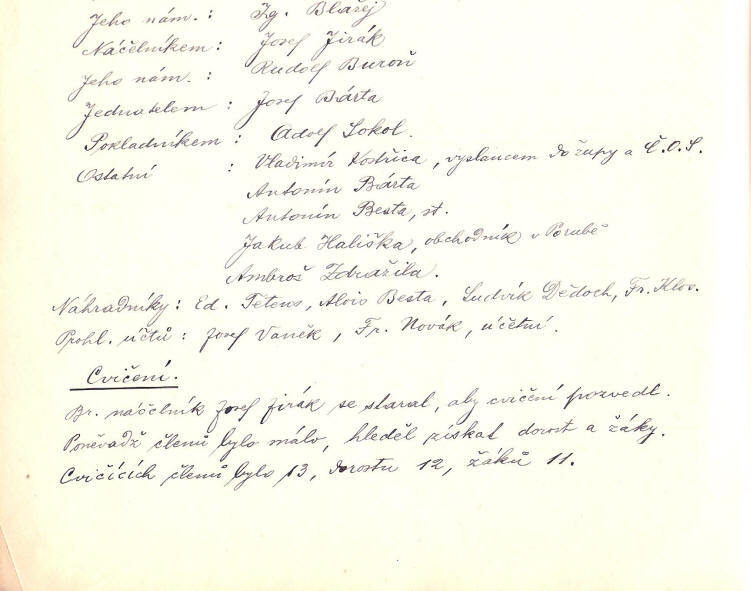 Jeho nám. : Ig. Blažej
Náčelníkem : Josef Jirák
Jeho nám. : Rudolf Buroň
Jednatelem : Josef Bárta
Pokladníkem : Adolf Sokol.
Ostatní : Vladimír Kostřica, vyslancem do župy a Č.O.S.
Antonín Bárta
Antonín Besta, st.
Jakub Hališka, obchodník v Porubě
Ambrož Zdražila.
Náhradníky : Ed. Tetens, Alois Besta, Ludvík Dědoch, Fr. Klos.
Prohl. účtů : Josef Vaněk, Fr. Novák, účetní.
Cvičení.
Br. náčelník Josef Jirák se staral, aby cvičení pozvedl.
Poněvadž členů bylo málo, hleděl získat dorost a žáky.
Cvičících členů bylo 13, dorostu 12, žáků 11.